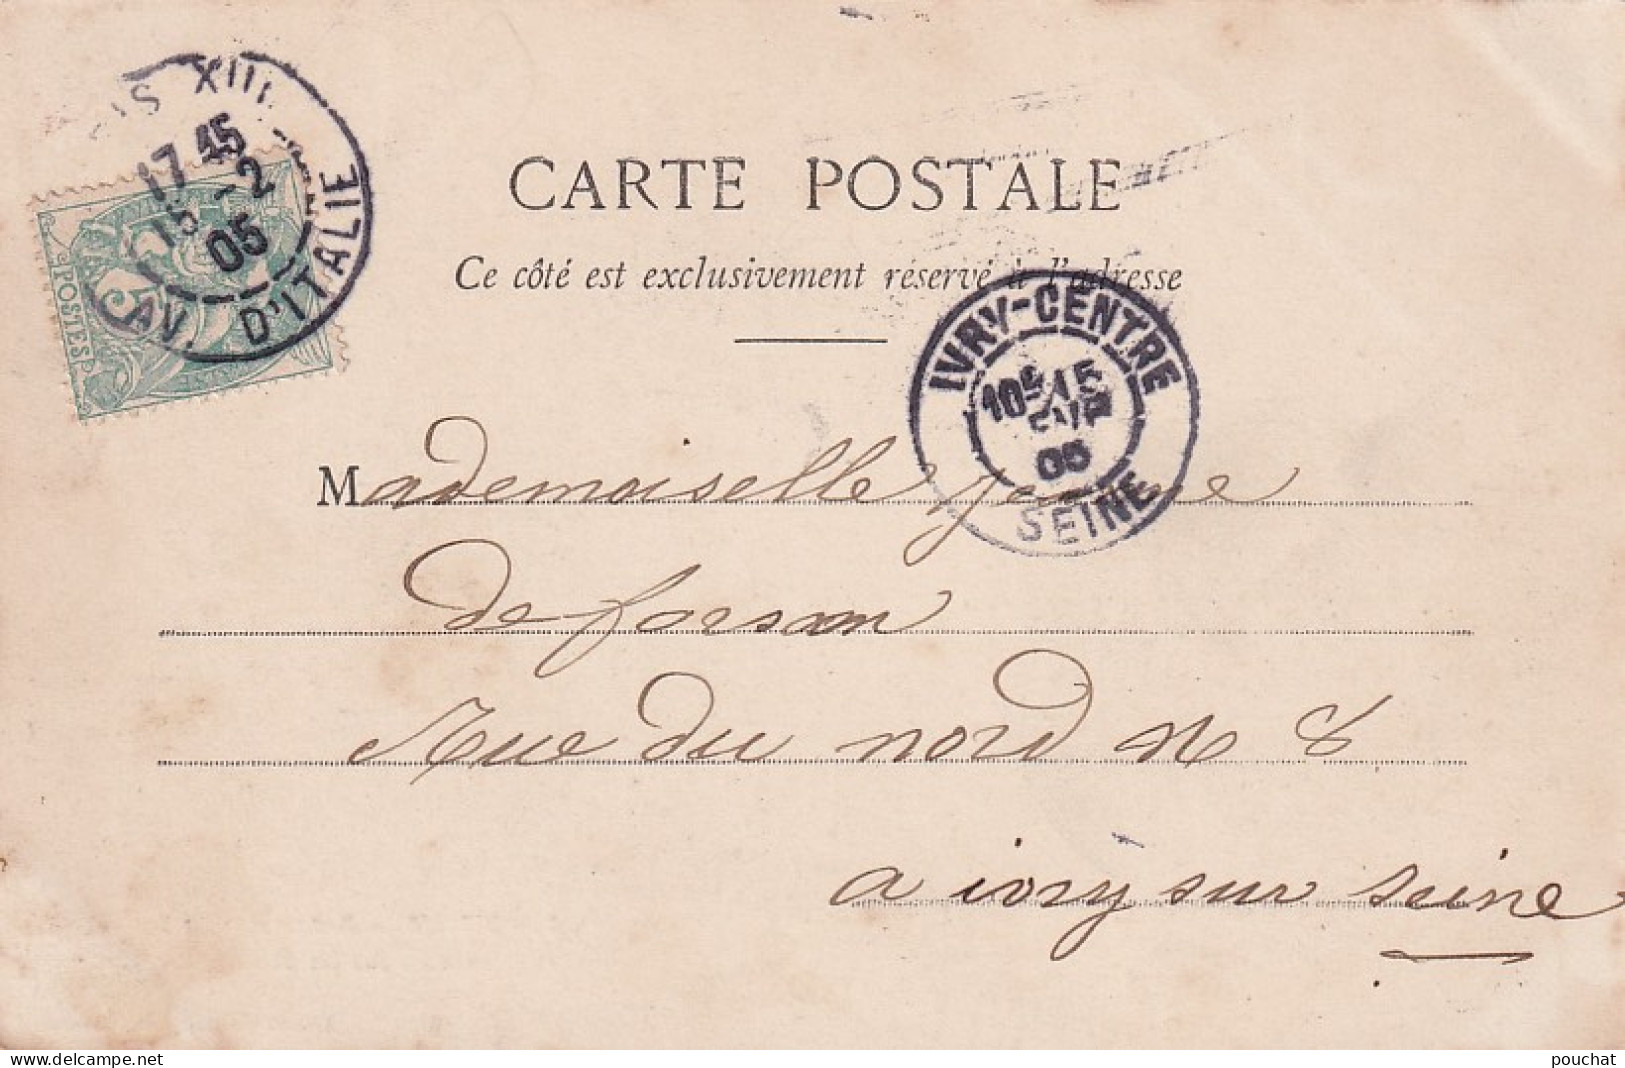 XIII
17 45
15 -2
05
AV. D'ITALIE
POSTES
CARTE POSTALE
Ce côté est exclusivement réservé à l'adresse
IVRY-CENTRE
10 15
05
SEINE
Mademoiselle
de forsan
Rue du nord N 8
a ivry sur seine
pouchat